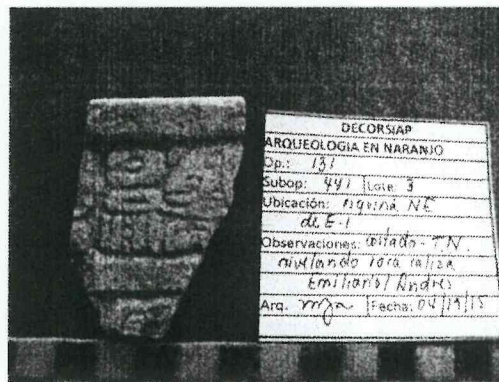 DECORSIAP
ARQUEOLOGIA EN NARANJO
Op.: 131
Subop: 441 Lote: 3
Ubicación: esquina NE
de E-1
Observaciones: - T.N.
nivelando caliza
Emiliano/ Andres
Arq. Fecha: 04/19/15